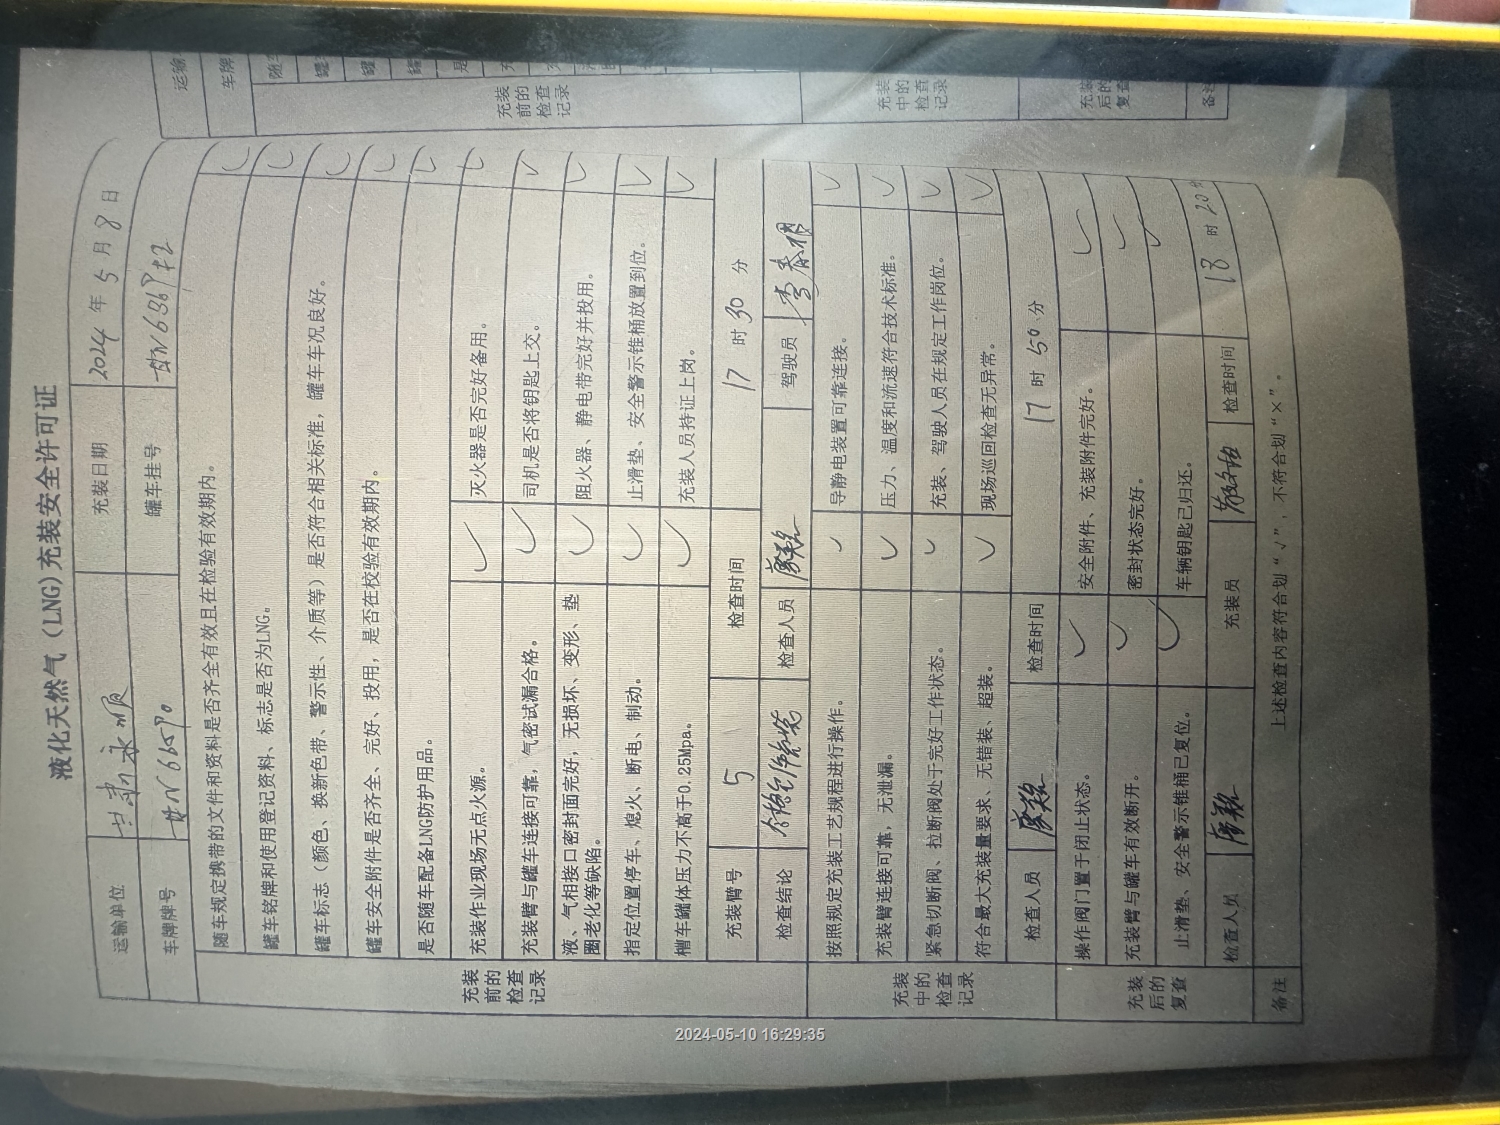 液化天然气（LNG)充装安全许可证
运输单位 甘肃永顺 充装日期 2024 年 5 月 8 日
车牌号 罐车挂号
充装前的检查记录
随车规定携带的文件和资料是否齐全有效且在检验有效期内。
罐车铭牌和使用登记资料、标志是否为LNG。
罐车标志（颜色、换新色带、警示性、介质等）是否符合相关标准，罐车车况良好。
罐车安全附件是否齐全、完好、投用，是否在校验有效期内。
是否随车配备LNG防护用品。
充装作业现场无点火源。 ✓ 灭火器是否完好备用。 ✓
充装臂与罐车连接可靠，气密试漏合格。 ✓ 司机是否将钥匙上交。 ✓
液、气相接口密封面完好，无损坏、变形、垫 ✓ 阻火器、静电带完好并投用。 ✓
圈老化等缺陷。
指定位置停车、熄火、断电、制动。 ✓ 止滑垫、安全警示锥桶放置到位。 ✓
槽车罐体压力不高于0.25Mpa。 ✓ 充装人员持证上岗。 ✓
充装臂号 5 检查时间 17 时 30 分
检查结论 检查人员 驾驶员
充装中的检查记录
按照规定充装工艺规程进行操作。 ✓ 导静电装置可靠连接。 ✓
充装臂连接可靠，无泄漏。 ✓ 压力、温度和流速符合技术标准。 ✓
紧急切断阀、拉断阀处于完好工作状态。 ✓ 充装、驾驶人员在规定工作岗位。 ✓
符合最大充装量要求、无错装、超装。 ✓ 现场巡回检查无异常。 ✓
检查人员 检查时间 17 时 50 分
充装后的复查
操作阀门置于闭止状态。 ✓ 安全附件、充装附件完好。 ✓
充装臂与罐车有效断开。 ✓ 密封状态完好。 ✓
止滑垫、安全警示锥桶已复位。 ✓ 车辆钥匙已归还。 ✓
检查人员 充装员 检查时间 18 时 20 分
备注 上述检查内容符合划“✓”，不符合划“×”。
运输
车牌
随
罐
罐
罐
是
充装前的检查记录
充装中的检查记录
充装后的复查
备注
2024-05-10 16:29:35